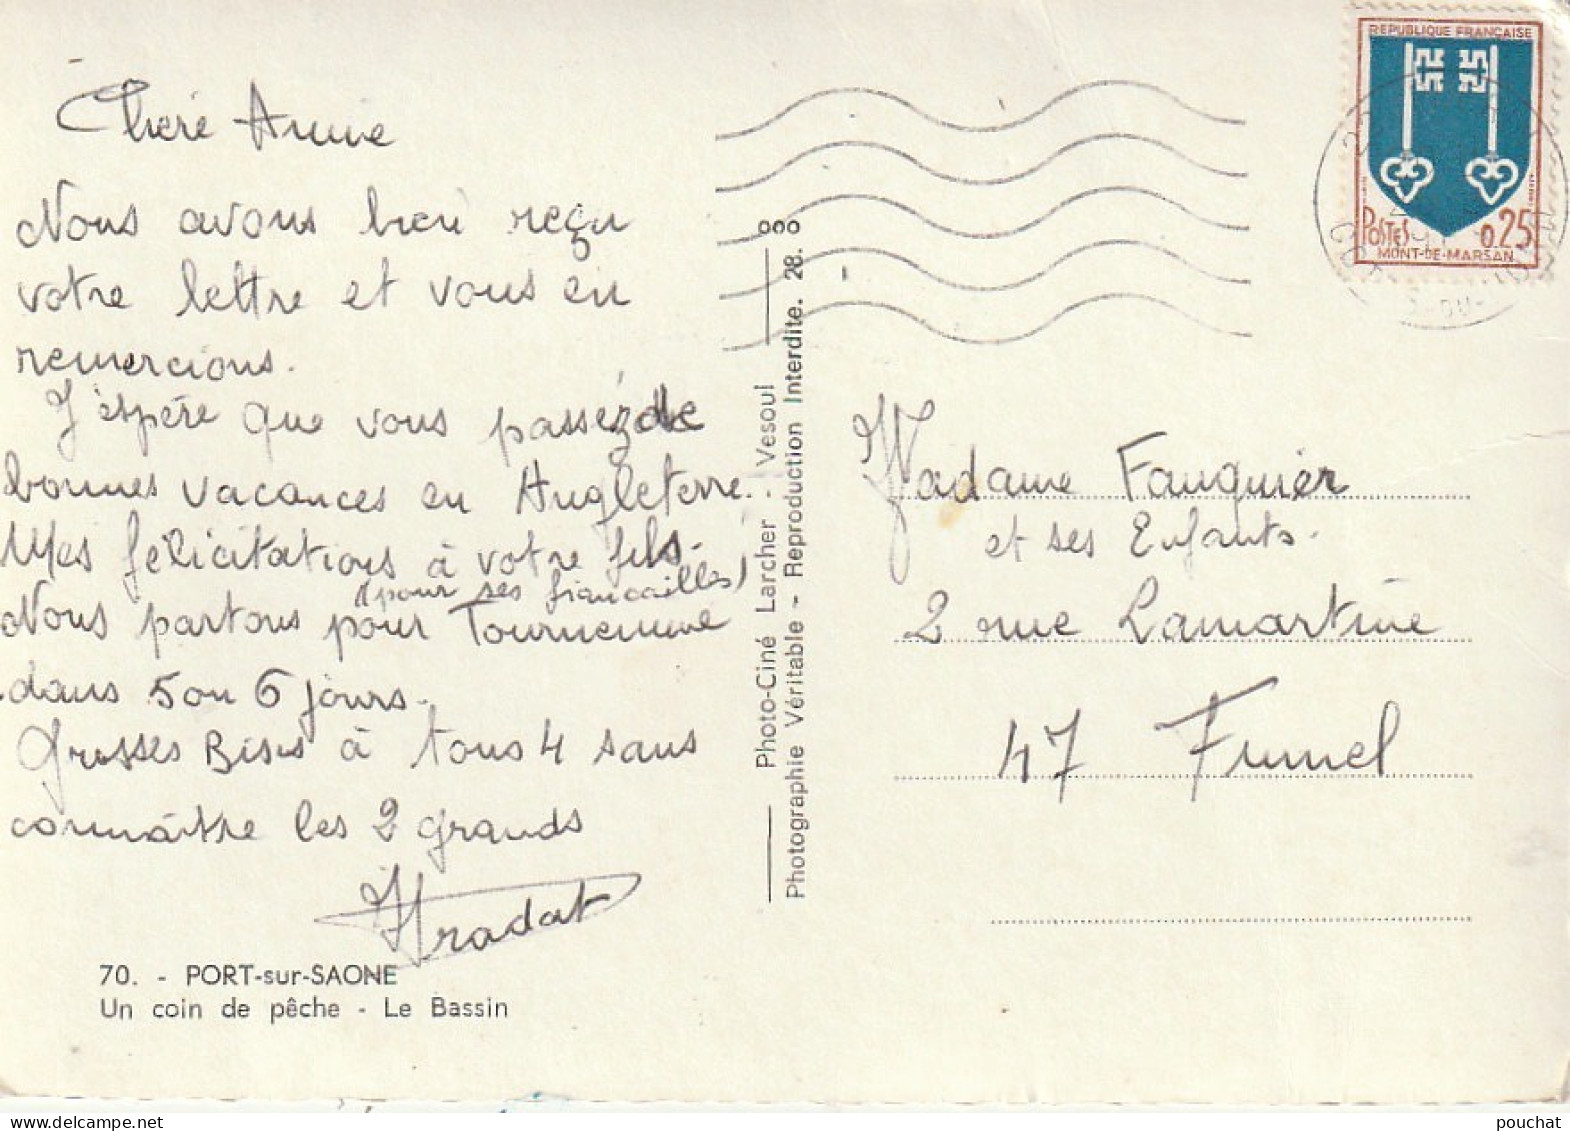 Chère Annie
Nous avons bien reçu
votre lettre et vous en
remercions.
J'espère que vous passez de
bonnes vacances en Angleterre.
Mes félicitations à votre fils.
(pour ses fiancailles)
Nous partons pour Tournemine
dans 5 ou 6 jours.
Grosses Bises à tous 4 sans
connaître les 2 grands
70. - PORT-sur-SAONE
Un coin de pêche - Le Bassin
ooo
Photo-Ciné Larcher - Vesoul
Photographie Véritable - Reproduction Interdite. 28.
REPUBLIQUE FRANÇAISE
POSTES 0.25
MONT-DE-MARSAN
Madame Fauquier
et ses Enfants.
2 rue Lamartine
47 Fumel
pouchat